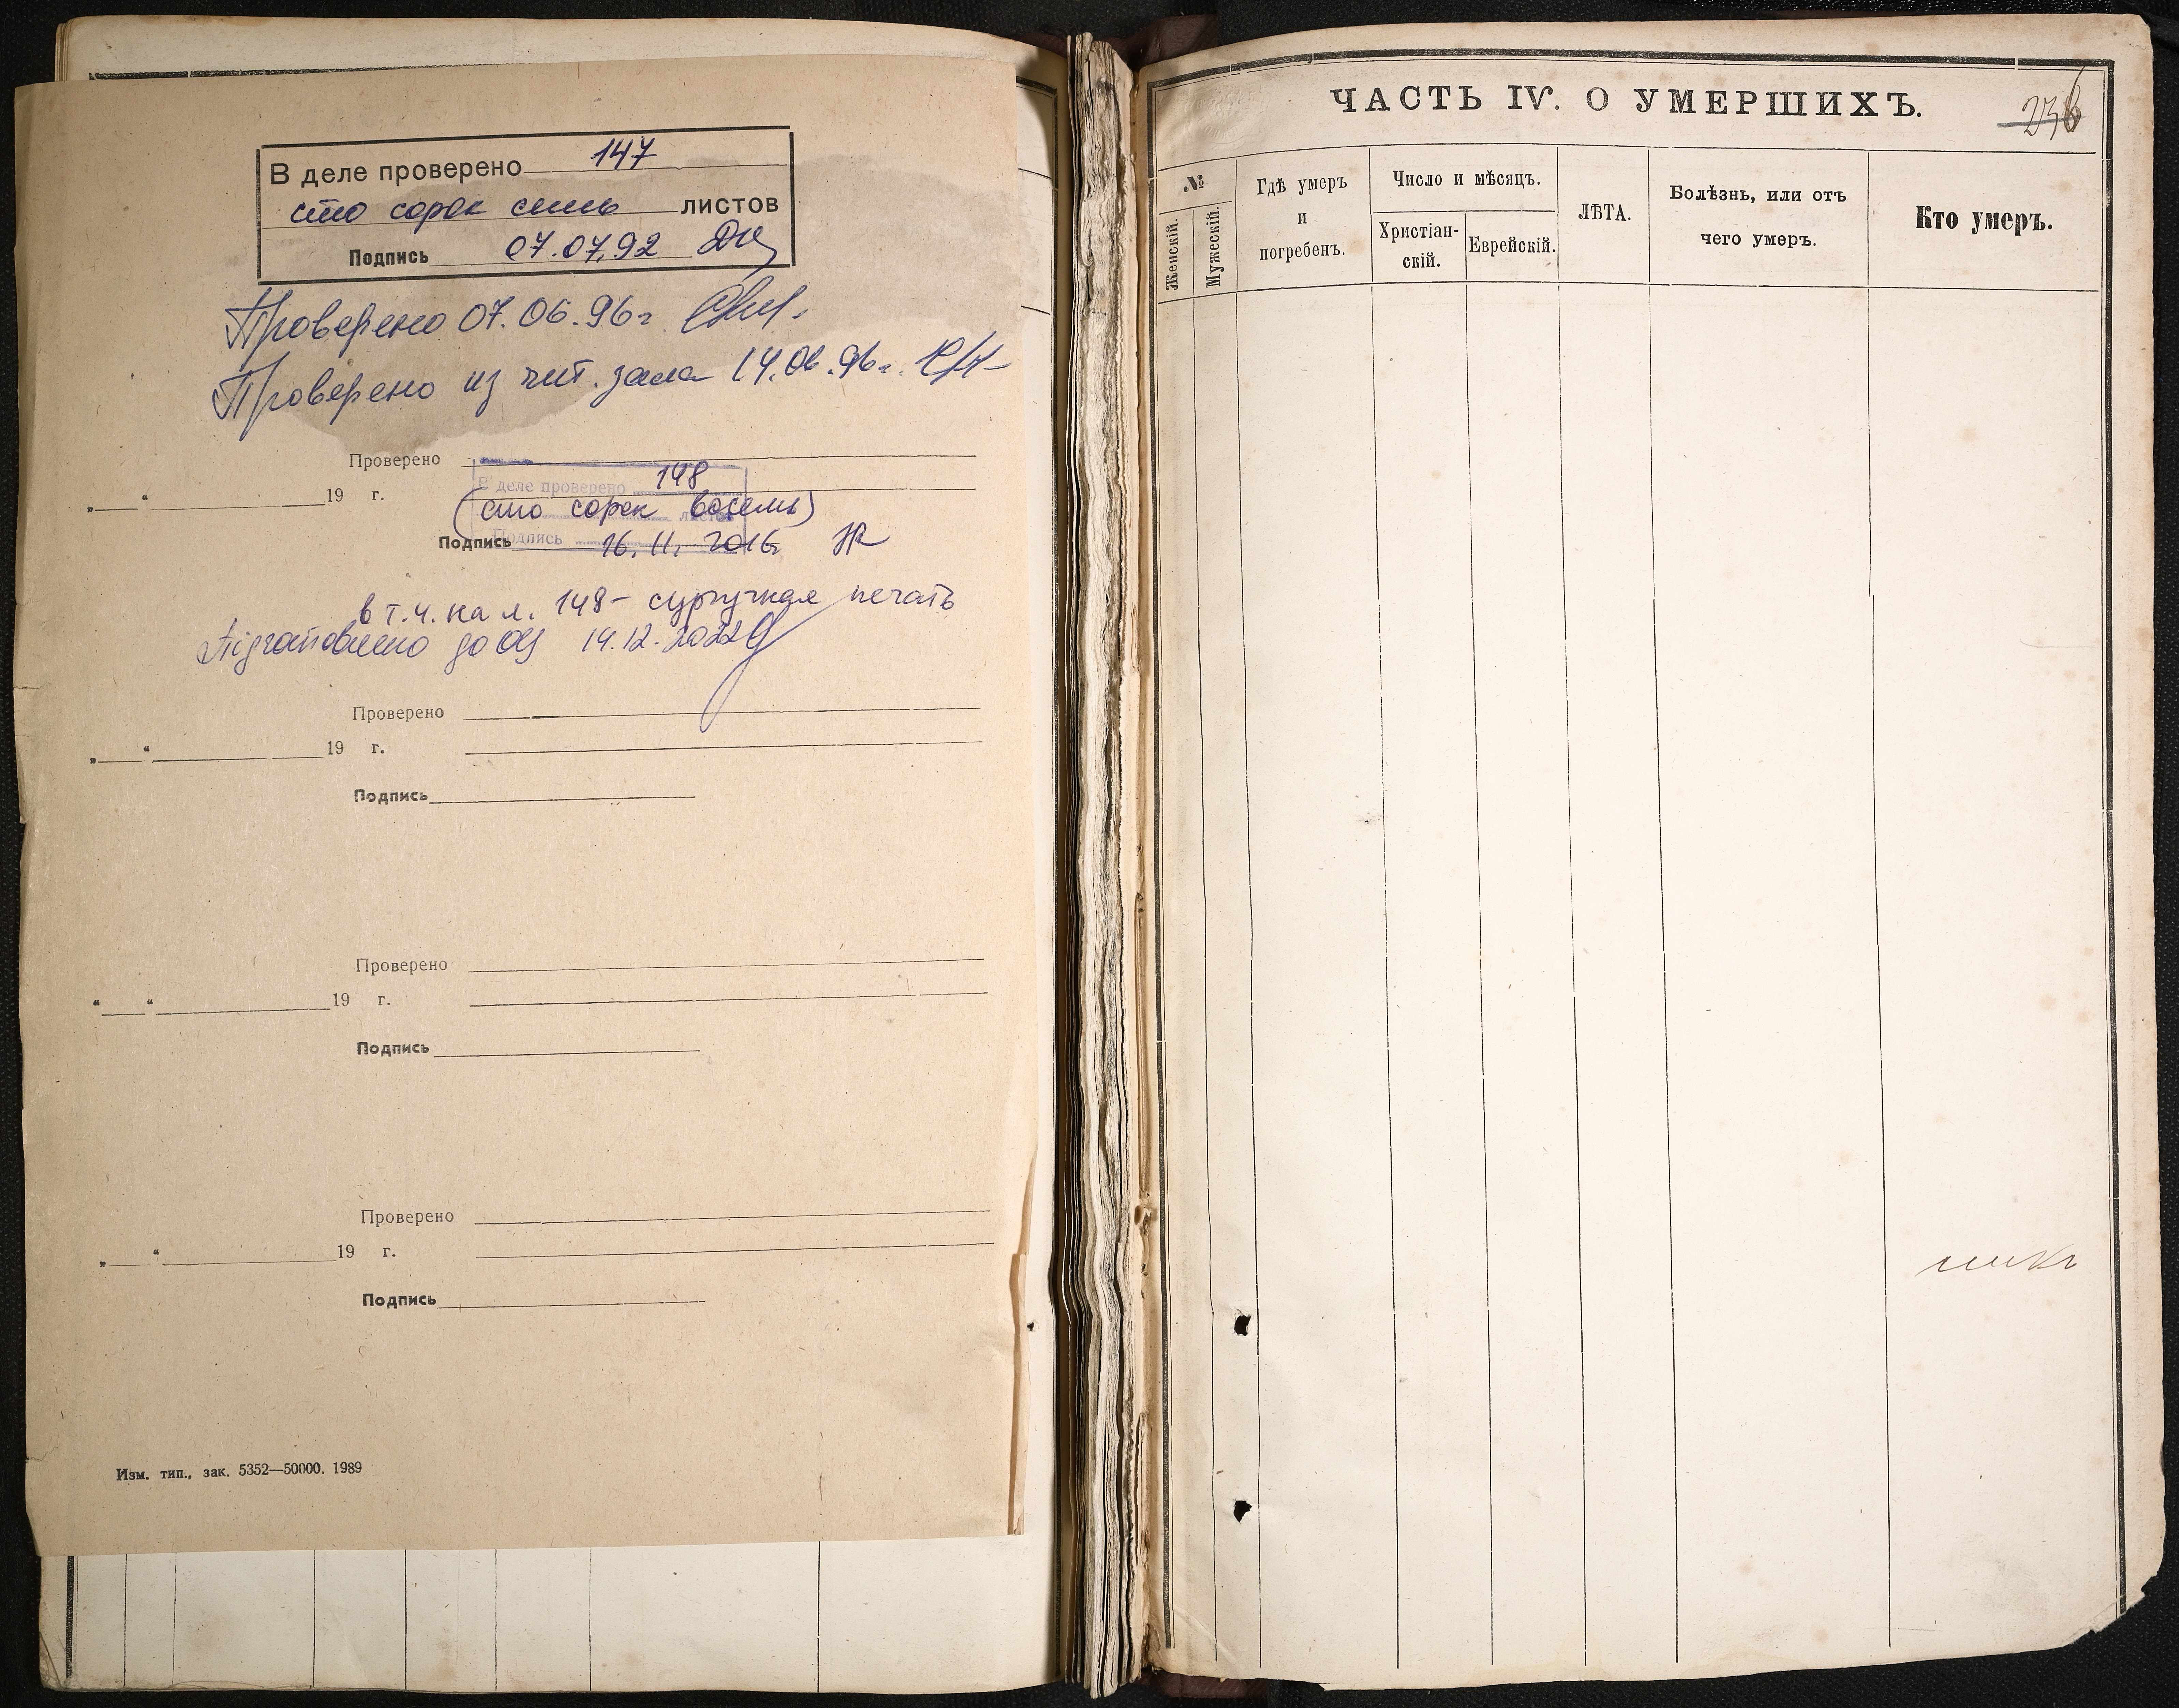 В деле проверено 147
сто сорок семь листов
Подпись 07.07.92
Проверено 07.06.96г
Проверено из чит. зала 14.06.96г.
Проверено
В деле проверено 148
„ “ 19 г.
(сто сорок восемь)
листов
Подпись
Подпись 16.11.2016
в т.ч. на л. 148 - сургучная печать
Підготовлено до ОЦ 14.12.2022
Проверено
„ “ 19 г.
Подпись
Проверено
“ “ 19 г.
Подпись
Проверено
„ “ 19 г.
Подпись
Изм. тип., зак. 5352—50000. 1989
ЧАСТЬ IV. О УМЕРШИХЪ.
236
№
Женскій.
Мужескій.
Гдѣ умеръ
и
погребенъ.
Число и мѣсяцъ.
Христіан-
скій.
Еврейскій.
ЛѢТА.
Болѣзнь, или отъ
чего умеръ.
Кто умеръ.